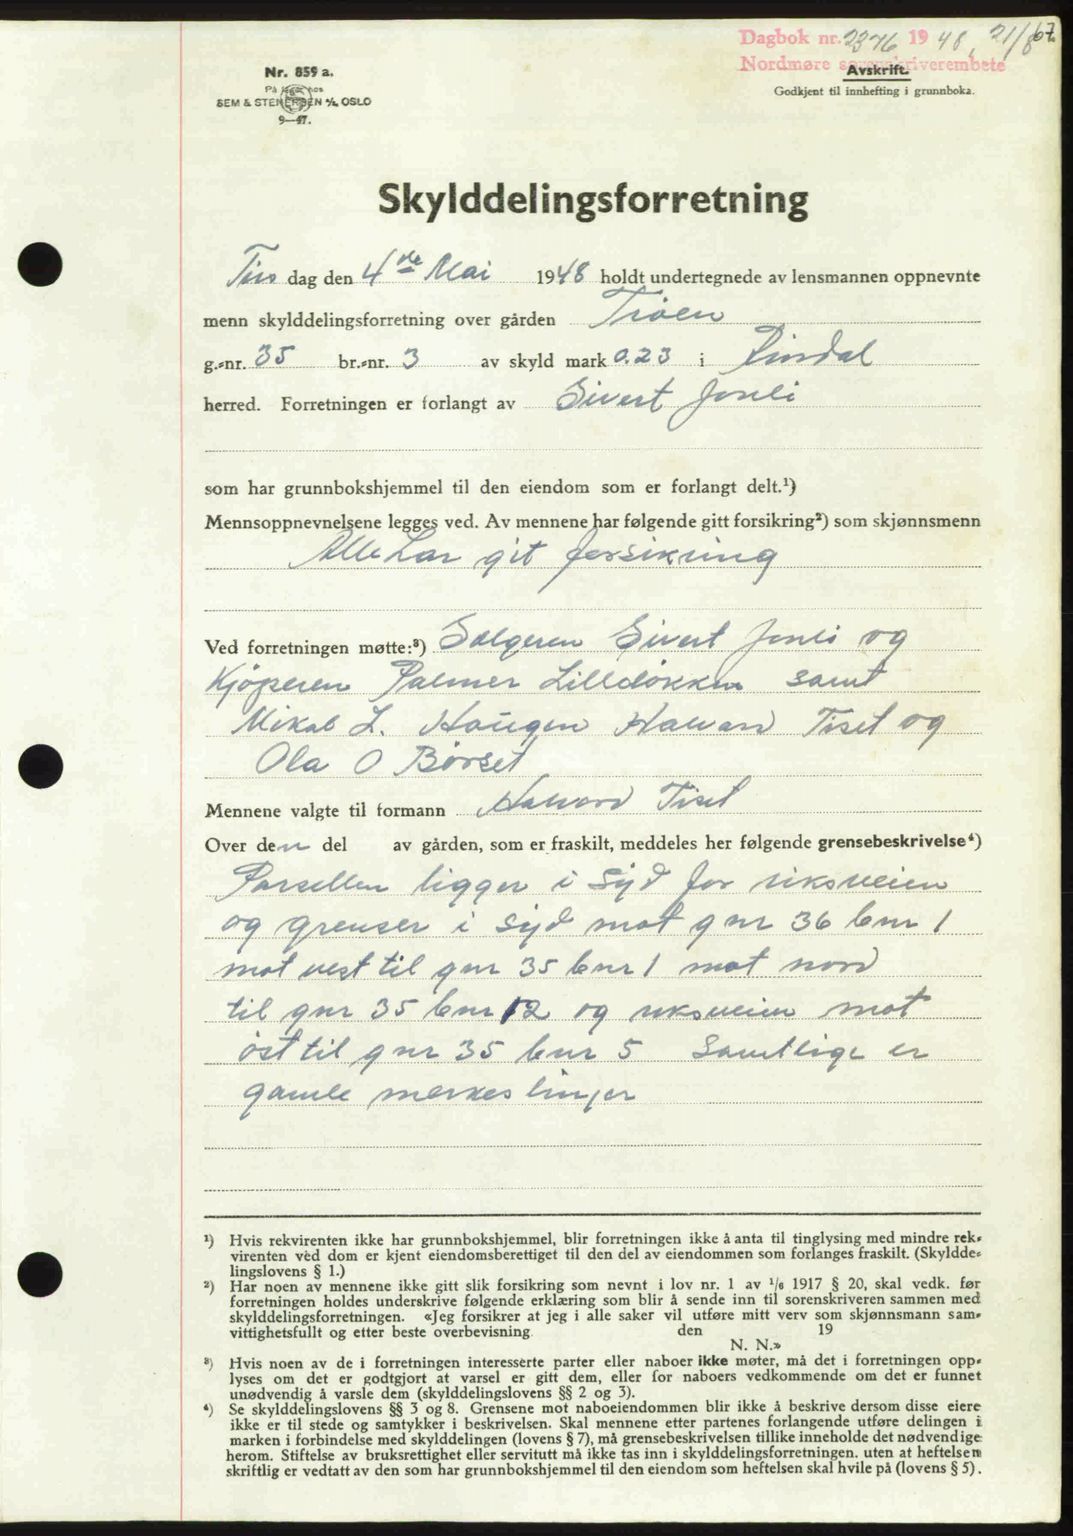 Dagbok nr. 2376 1948, 21/8 67.
Nordmøre sorenskriverembete
Avskrift.
Godkjent til innhefting i grunnboka.
Nr. 859 a.
På lager hos
SEM & STENERSEN A/S, OSLO
9—47.
Skylddelingsforretning
Tirs dag den 4de Mai 1948 holdt undertegnede av lensmannen oppnevnte
menn skylddelingsforretning over gården Trøen
g.-nr. 35 br.-nr. 3 av skyld mark 0.23 i Rindal
herred. Forretningen er forlangt av Sivert Jonli
som har grunnbokshjemmel til den eiendom som er forlangt delt.¹)
Mennsoppnevnelsene legges ved. Av mennene har følgende gitt forsikring²) som skjønnsmenn
Alle har git forsikring
Ved forretningen møtte:³) Selgeren Sivert Jonli og
Kjøperen Palmer Lilledøkken samt
Mikal L. Haugen Halvard Tiset og
Ola O Børset
Mennene valgte til formann Halvard Tiset
Over den del av gården, som er fraskilt, meddeles her følgende grensebeskrivelse⁴)
Parsellen ligger i Syd for riksveien
og grenser i syd mot gnr 36 bnr 1
mot vest til gnr 35 bnr 1 mot nord
til gnr 35 bnr 12 og riksveien mot
øst til gnr 35 bnr 5 Samtlige er
gamle merkeslinjer
¹) Hvis rekvirenten ikke har grunnbokshjemmel, blir forretningen ikke å anta til tinglysing med mindre rek-
virenten ved dom er kjent eiendomsberettiget til den del av eiendommen som forlanges fraskilt. (Skyldde-
lingslovens § 1.)
²) Har noen av mennene ikke gitt slik forsikring som nevnt i lov nr. 1 av 1/6 1917 § 20, skal vedk. før
forretningen holdes underskrive følgende erklæring som blir å sende inn til sorenskriveren sammen med
skylddelingsforretningen. «Jeg forsikrer at jeg i alle saker vil utføre mitt verv som skjønnsmann sam-
vittighetsfullt og etter beste overbevisning. den 19
N. N.»
³) Hvis noen av de i forretningen interesserte parter eller naboer ikke møter, må det i forretningen opp-
lyses om det er godtgjort at varsel er gitt dem, eller for naboers vedkommende om det er funnet
unødvendig å varsle dem (skylddelingslovens §§ 2 og 3).
⁴) Se skylddelingslovens §§ 3 og 8. Grensene mot naboeiendommen blir ikke å beskrive dersom disse eiere
ikke er til stede og samtykker i beskrivelsen. Skal mennene etter partenes forlangende utføre delingen i
marken i forbindelse med skylddelingen (lovens § 7), må grensebeskrivelsen tillike inneholde det nødvendige
herom. Stiftelse av bruksrettighet eller servitutt må ikke tas inn i skylddelingsforretningen, uten at heftelsen
skriftlig er vedtatt av den som har grunnbokshjemmel til den eiendom som heftelsen skal hvile på (lovens § 5).